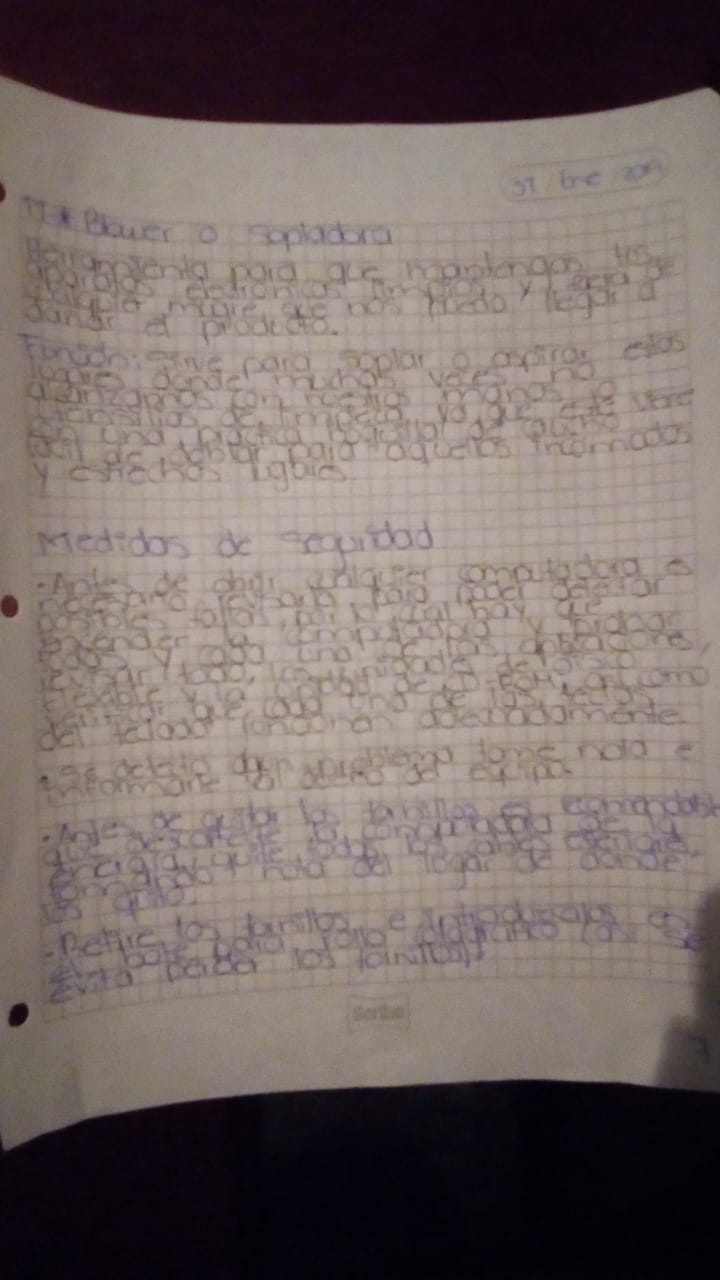 31 Ene 2019
11-* Blower o Sopladora
Herramienta para que mantengas tus
aparatos electrónicos limpios y fuera de
cualquier mugre que nos puedo llegar a
dañar el producto.
Función: Sirve para soplar o aspirar estos
lugares donde muchas veces no
alcanzamos con nuestras manos o
utensilios de limpieza ya que este viene
con una práctica
fácil de doblar para aquellos incomodos
y estrechos lugares.
Medidas de seguridad
·Antes de abrir cualquier computadora es
necesario revisarla para poder detectar
posibles fallas, por lo cual hay que
encender la computadora y probar
todos y cada una de las aplicaciones,
revisar todo, las unidades de disco
flexible y la unidad de así como
que cada una de las teclas
del teclado funcionan adecuadamente.
·Si detecta algun problema tome nota e
informarle al dueño del equipo.
·Antes de quitar los tornillos es recomendable
que desconecte la computadora de la
energía, quite todos los cables
nota del lugar de donde
los quito.
·Retire los tornillos e introduscalos en
para
evita perder los tornillos)
Scribe
7